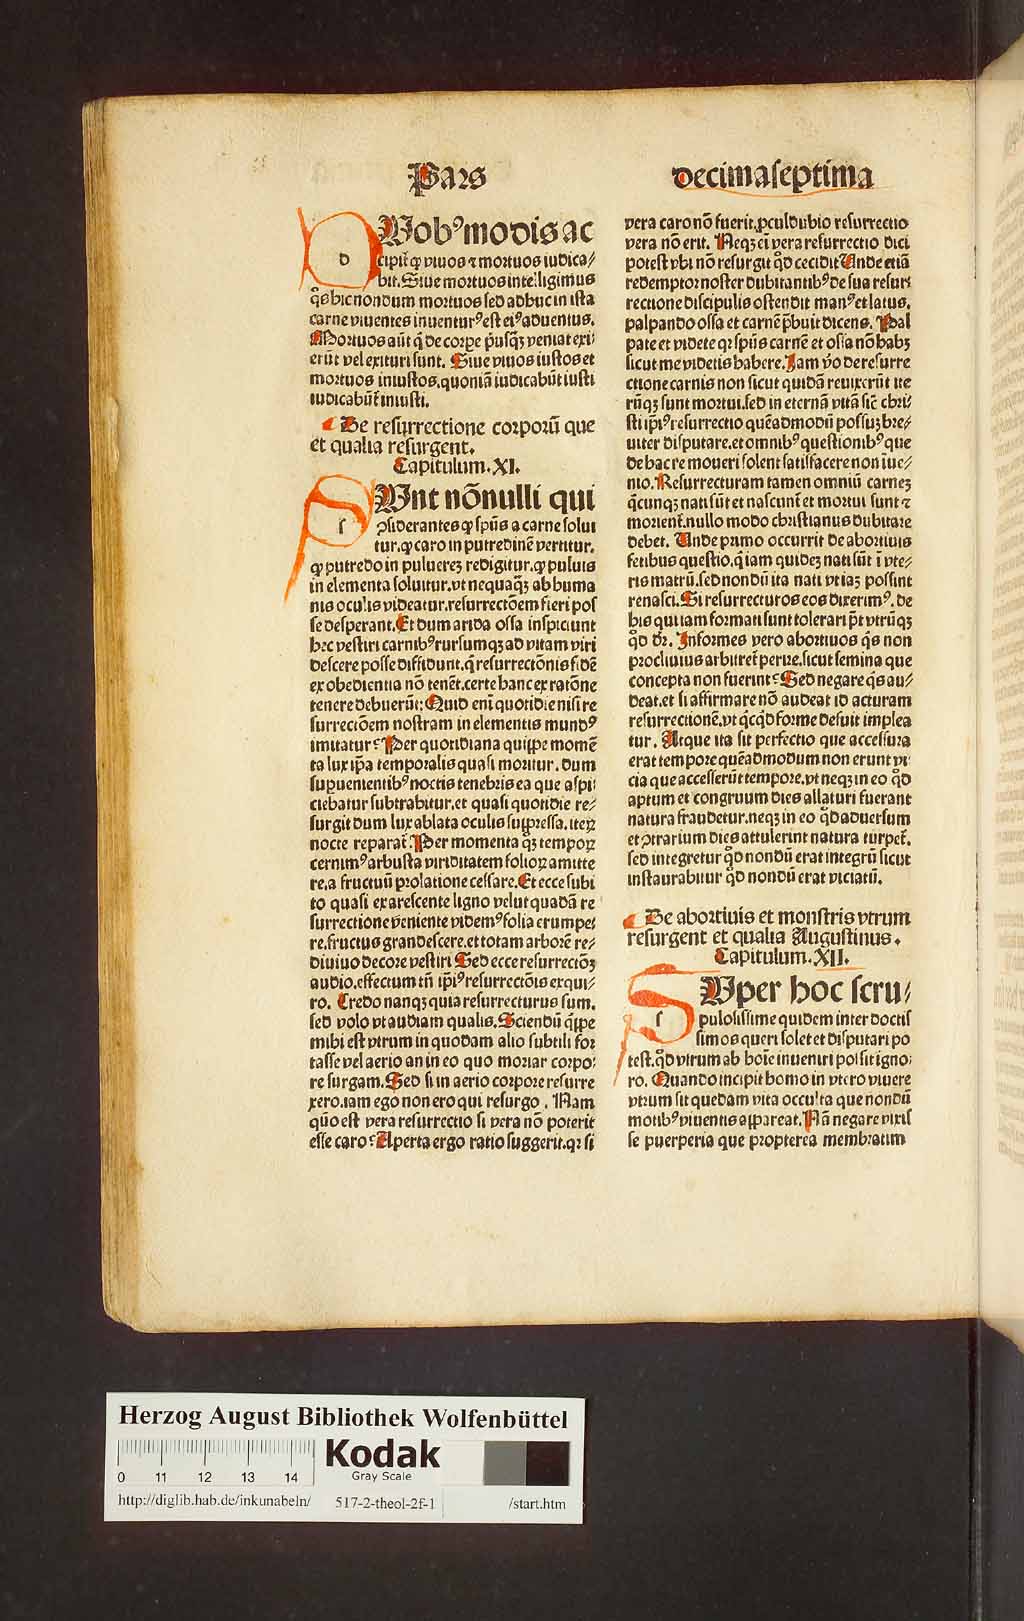 Pars
decimaseptima
DUob⁹ modis ac
cipit̃ ꝙ viuos ⁊ mortuos iudica⸗
bit. Siue mortuos intelligimus
q̃s hic nondum mortuos sed adhuc in ista
carne viuentes inuentur⁹ est ei⁹ aduentus.
Mortuos aũt q̃ de corpe p̃usqꝫ veniat exi⸗
erũt vel exituri sunt. Siue viuos iustos et
mortuos iniustos. quoniã iudicabũt iusti
iudicabũt̃ iniusti.
De resurrectione corporũ que
et qualia resurgent.
Capitulum. XI.
SUnt nõnulli qui
ꝯsiderantes ꝙ spũs a carne solui
tur. ꝙ caro in putredinẽ vertitur.
ꝙ putredo in puluereꝫ redigitur. ꝙ puluis
in elementa soluitur. vt nequaqꝫ ab huma
nis oculis videatur. resurrectõem fieri pos
se desperant. Et dum arida ossa inspiciunt
hec vestiri carnib⁹ rursumqꝫ ad vitam viri
descere posse diffidunt. q̃ resurrectõnis fidẽ
ex obedientia nõ tenẽt. certe hanc ex ratõne
tenere debuerũt: Quid eni̇̃ quotidie nisi re
surrectiõem nostram in elementis mund⁹
imitatur? Per quotidiana quippe momẽ
ta lux ip̃a temporalis quasi moritur. dum
supuenientib⁹ noctis tenebris ea que aspi⸗
ciebatur subtrahitur. et quasi quotidie re⸗
surgit dum lux ablata oculis suppressa. iteꝝ
nocte reparat̃. Per momenta qꝫ tempoꝝ
cernim⁹ arbusta viriditatem folioꝝ amitte
re. a fructuũ prolatione cessare. Et ecce subi
to quasi ex arescente ligno velut quadã re
surrectione veniente videm⁹ folia erumpe⸗
re. fructus grandescere. et totam arborẽ re⸗
diuiuo decore vestiri Sed ecce resurrectiõꝫ
audio. effectum tñ ip̃i⁹ resurrectiõis exqui⸗
ro. Credo nanqꝫ quia resurrecturus sum.
sed volo vt audiam qualis. Sciendũ q̃ppe
mihi est vtrum in quodam alio subtili for
tasse vel aerio an in eo quo moriar corpo⸗
re surgam. Sed si in aerio corpore resurre
xero. iam ego non ero qui resurgo. Nam
quõ est vera resurrectio si vera nõ poterit
esse caro? Aperta ergo ratio suggerit. qꝛ si
vera caro nõ fuerit. ꝓculdubio resurrectio
vera nõ erit. Neqꝫ ei̇̃ vera resurrectio dici
potest vbi nõ resurgit q̊d cecidit Unde etiã
redemptor noster dubitantib⁹ de sua resur⸗
rectione discipulis ostendit man⁹ et latus.
palpando ossa et carnẽ p̃buit dicens. Pal
pate et videte qꝛ spũs carnẽ et ossa nõ habꝫ
sicut me videtis habere. Jam v̊o de resurre
ctione carnis non sicut quidã reuixerũt ite
rũqꝫ sunt mortui. sed in eternã vitã sic̃ chri⸗
sti ip̃i⁹ resurrectio quẽadmodũ possuꝫ bre⸗
uiter disputare. et omnib⁹ questionib⁹ que
de hac re moueri solent satisfacere non iue⸗
nio. Resurrecturam tamen omniũ carneꝫ
q̃cunqꝫ nati sũt et nascunt̃ et mortui sunt ⁊
morient̃. nullo modo christianus dubitare
debet. Unde primo occurrit de abortiuis
fetibus questio. q̃ iam quideꝫ nati sũt i̇̃ vte⸗
ris matrũ. sed nondũ ita nati vt iaꝫ possint
renasci. Si resurrecturos eos dixerim⁹. de
his qui iam formati sunt tolerari p̃t vtrũqꝫ
q̊d dr̃. Informes vero abortiuos q̃s non
procliuius arbitret̃ perire. sicut semina que
concepta non fuerint? Sed negare q̃s au⸗
deat. et si affirmare nõ audeat id acturam
resurrectionẽ. vt q̃cq̊d forme defuit implea
tur. Atque ita sit perfectio que accessura
erat tempore quẽadmodum non erunt vi⸗
cia que accesserũt tempore. vt neqꝫ in eo q̊d
aptum et congruum dies allaturi fuerant
natura fraudetur. neqꝫ in eo q̊d aduersum
et ꝯtrarium dies attulerint natura turpet̃.
sed integretur q̊d nondũ erat integrũ sicut
instaurabitur q̊d nondũ erat viciatũ.
De abortiuis et monstris vtrum
resurgent et qualia Augustinus.
Capitulum. XII.
SUper hoc scru⸗
pulosissime quidem inter doctis
simos queri solet et disputari po
test. q̊d vtrum ab hoi̇̃e inueniri possit igno⸗
ro. Quando incipit homo in vtero viuere
vtrum sit quedam vita occulta que nondũ
motib⁹ viuentis appareat. Nã negare vixis
se puerperia que propterea membratim
Herzog August Bibliothek Wolfenbüttel
Kodak
Gray Scale
0 11 12 13 14
http://diglib.hab.de/inkunabeln/ 517-2-theol-2f-1 /start.htm